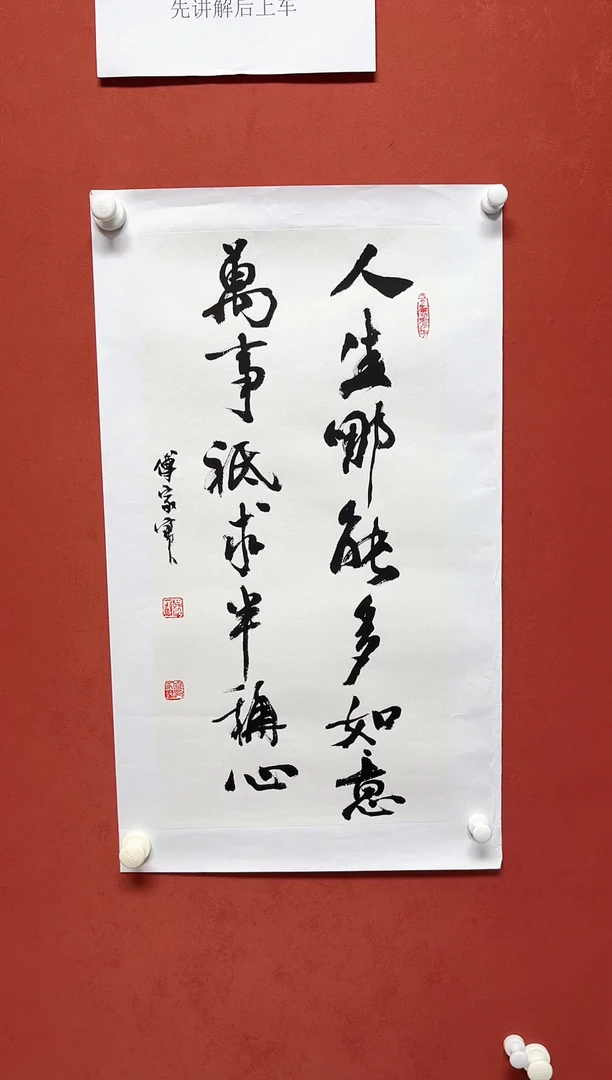 先讲解后上车
人生哪能多如意
萬事祇求半稱心
傅家寶